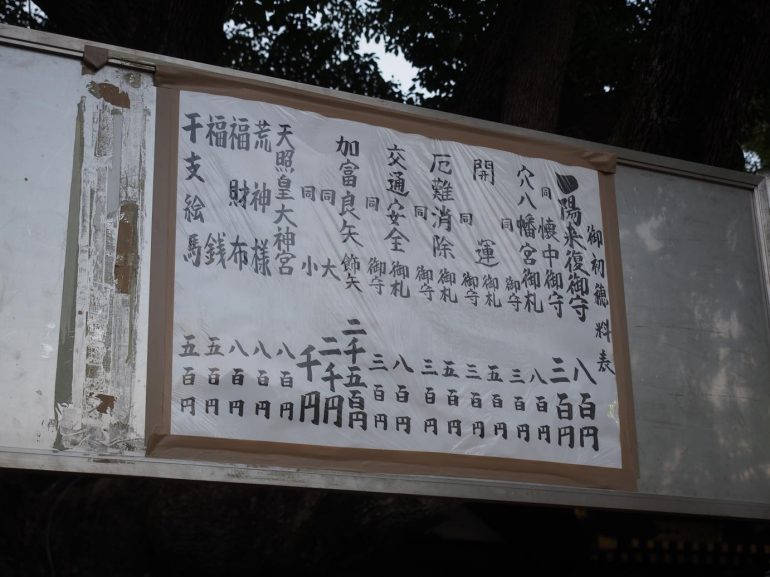 御初穂料表
一陽来復御守 八百円
同 懐中御守 三百円
穴八幡宮御札 八百円
同 御守 三百円
開運 御札 五百円
同 御守 三百円
厄難消除 御札 五百円
同 御守 三百円
交通安全 御札 八百円
同 御守 三百円
加富良矢 飾矢 二千五百円
同 大 二千円
同 小 千円
天照皇大神宮 八百円
荒神様 八百円
福財布 八百円
福銭 五百円
干支絵馬 五百円